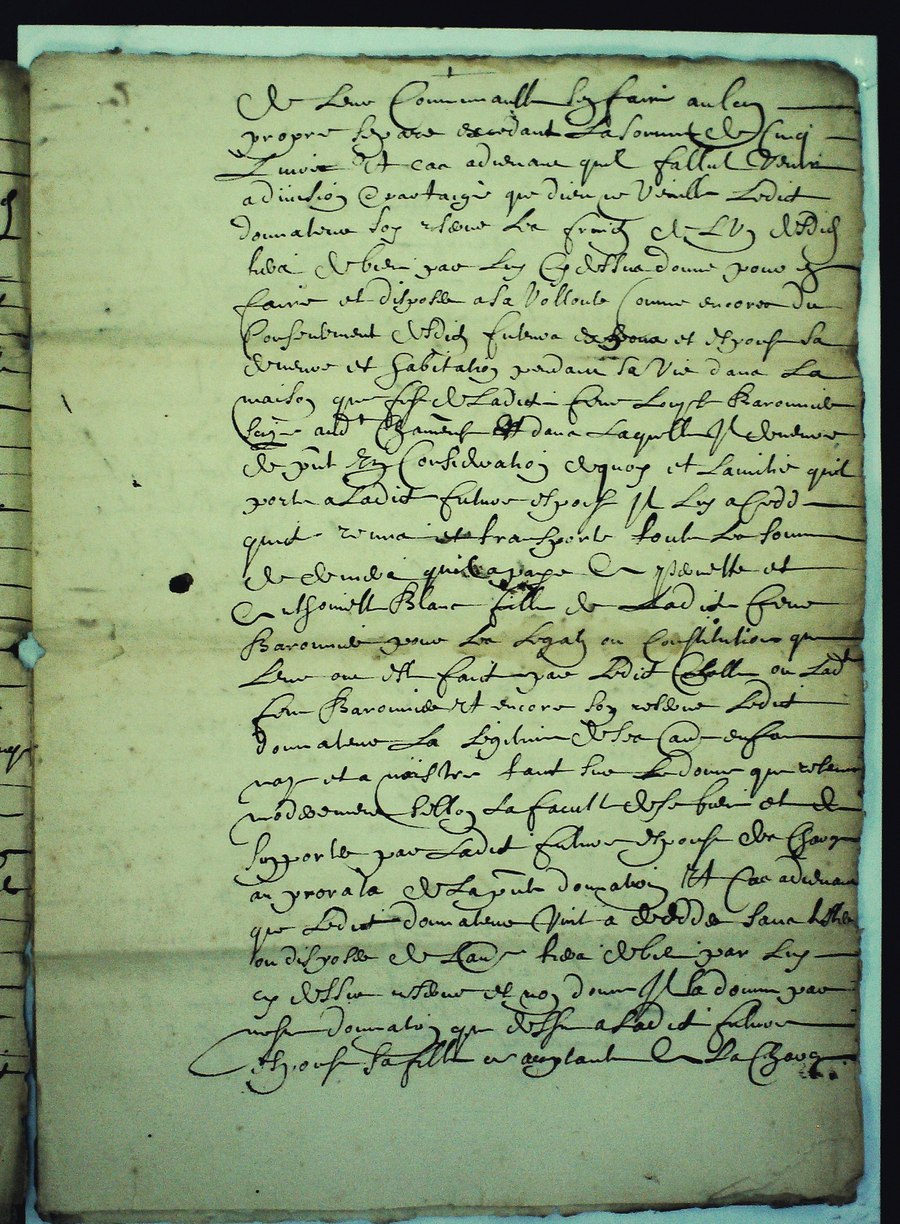 de leur Communaulte sy faire au lieu
propre separe excedant la somme de Cinq
Livres Et cas advenant quil fallut venir
a division & partaige que dieu ne veuille Ledit
donnateur soy reserve les fruitz de Luy desdictz
biens par Luy Cy dessus donne pour en
faire et disposer a sa vollonte Comme encores du
Consentement desditz futeurs espoux et espouse sa
demeure et habitation pendant sa vie dans La
maison que fust de Ladite feue Loyse Baronnier
audt dans Laquelle Il demeure
de pnt En Consideration dequoy et Lamitie quil
porte a Ladite future espouse Il Luy a Cedde
quicte remis et transporte toute La somme
de deniers quil a paye a et
a Blanc fille de Ladite feue
Baronniere pour Les Legatz ou Constitution que
Leur ont est faict par Ledit ou Ladt
feue Baronniere Et encore soy reserve Ledit
donnateur La Legitime de ses enfans
nay et a naistre tant sur Le donne que reserve
moderement sellon La faculte de se biens et de
supporter par Ladite future espouse des Charges
au prorata de La pnte donnation Et Cas advenant
que Ledit donnateur vint a decedder sans tester
ou disposer de Lautre biens par Luy
cy dessus reserve et non donne Il La donne par
mesme donnation que dessus a Ladite future
espouse sa fille acceptante a La Charge